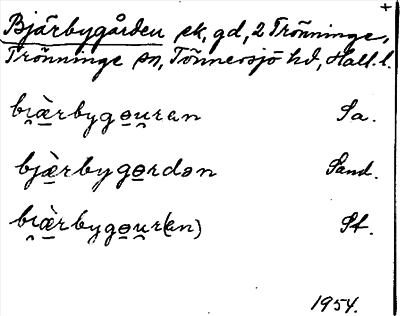 +
Bjärbygården ek, gd, 2 Trönninge,
Trönninge sn, Tönnersjö hd, Hall. l.
bi̯æ̀rbygo̤u̯ran Sa.
bjæ̀rbygo̤rdən Sand.
bi̯æ̀rbygo̤u̯r(an) St.
1954.